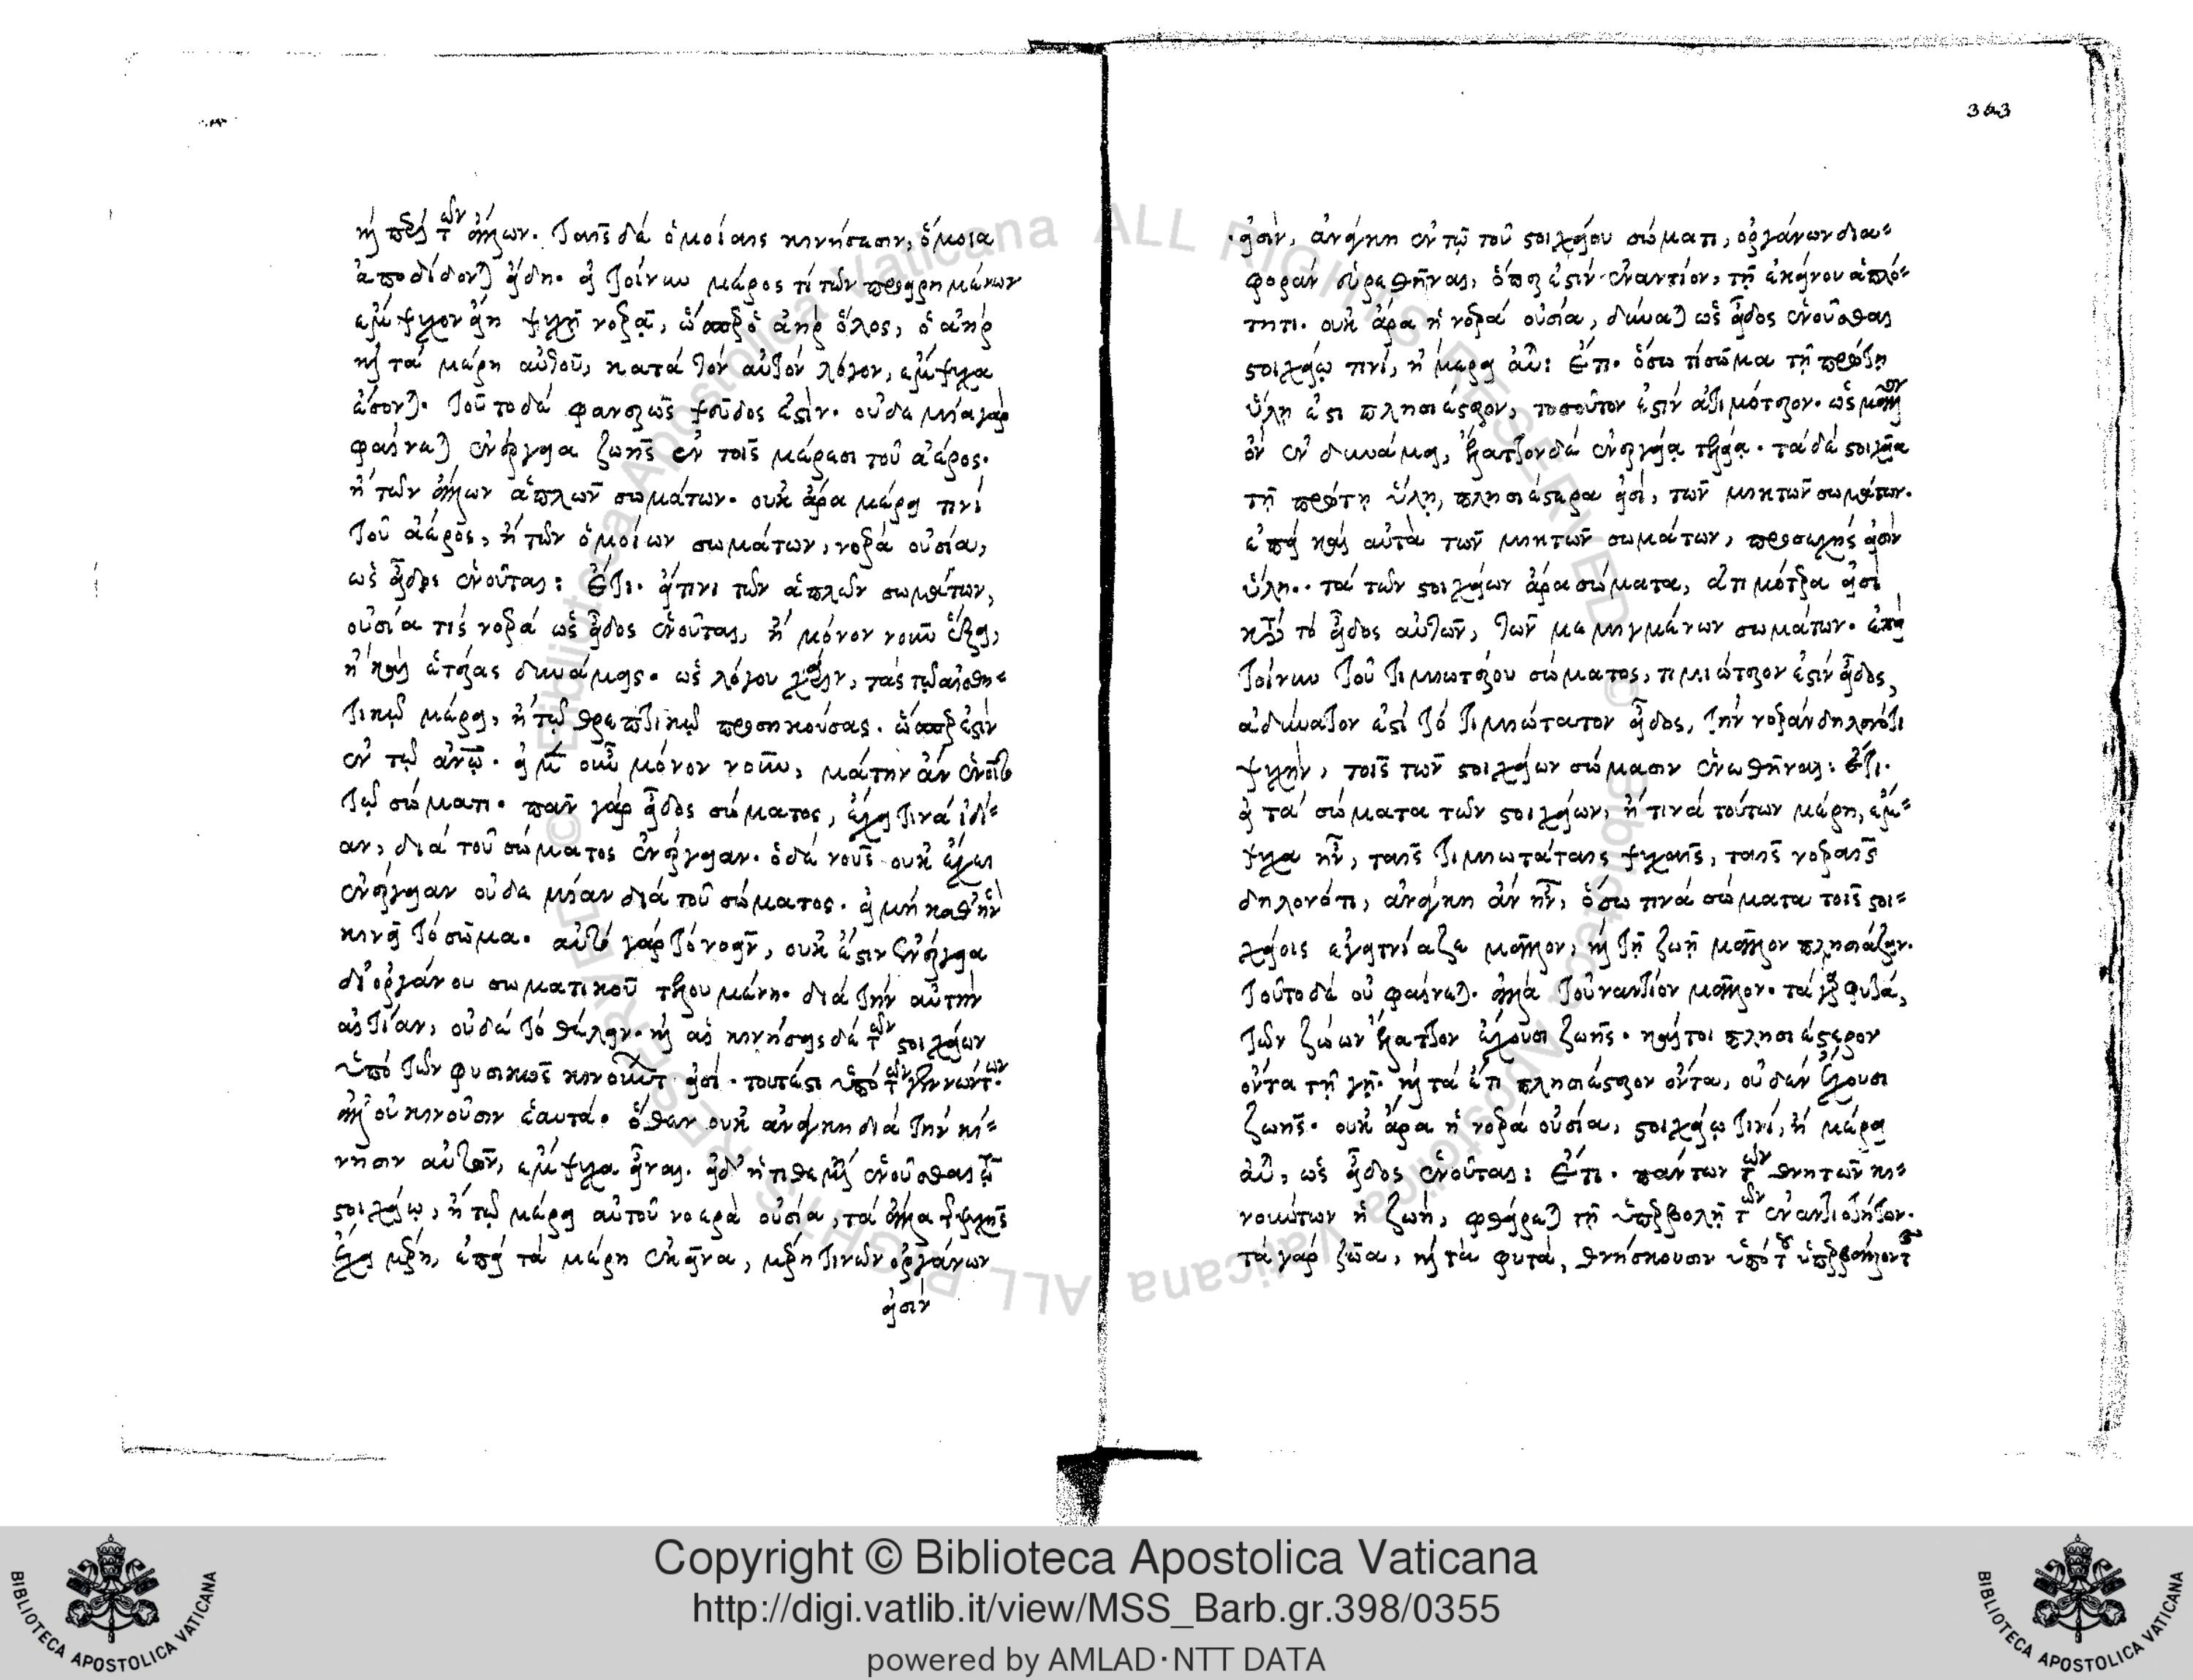 καὶ περὶ τῶν ἄλλων. ταῖς δὲ ὁμοίαις κινήσεσιν, ὅμοια
ἀποδίδονται εἴδη. εἰ τοίνυν μέρος τί τῶν προειρημένων
ἔμψυχον εἴη ψυχῇ νοερᾷ, ὥσπερ ὁ ἀὴρ ὅλος, ὁ ἀὴρ
καὶ τὰ μέρη αὐτοῦ, κατὰ τὸν αὐτὸν λόγον, ἔμψυχα
ἔσονται. τοῦτο δὲ φανερῶς ψεῦδος ἐστίν. οὐδε μία γὰρ
φαίνεται ἐνέργεια ζωῆς ἐν τοῖς μέρεσι τοῦ ἀέρος.
ἢ τῶν ἄλλων ἁπλῶν σωμάτων. οὐκ ἄρα μέρει τινὶ
τοῦ ἀέρος, ἢ τῶν ὁμοίων σωμάτων, νοερὰ οὐσία,
ὡς εἶδος ἑνοῦται: Ἔτι. εἴ τινι τῶν ἁπλῶν σωμάτων,
οὐσία τίς νοερὰ ὡς εἶδος ἑνοῦται, ἢ μόνον νοῦν ἕξει,
ἢ καὶ ἑτέρας δυνάμεις. ὡς λόγου χάριν, τὰς τῷ αἰσθη-
τικῷ μέρει, ἢ τῷ θρεπτικῷ προσηκούσας. ὥσπερ ἐστὶν
ἐν τῷ ἀνθρώπῳ. εἰ μὲν οὖν μόνον νοῦν, μάτην ἂν ἑνοῖτο
τῷ σώματι. πᾶν γὰρ εἶδος σώματος, ἔχει τινὰ ἰδί-
αν, διὰ τοῦ σώματος ἐνέργειαν. ὁ δὲ νοῦς οὐκ ἔχει
ἐνέργειαν οὐδε μίαν διὰ τοῦ σώματος. εἰ μὴ καθ' ἣν
κινεῖ τὸ σῶμα. αὐτὸ γὰρ τὸ νοεῖν, οὐκ ἔστιν ἐνέργεια
δι' ὀργάνου σωματικοῦ τελουμένη. διὰ τὴν αὐτὴν
αἰτίαν, οὐδὲ τὸ θέλειν. καὶ αἱ κινήσεις δὲ τῶν στοιχείων
ὑπὸ τῶν φυσικῶς κινούντων εἰσί. τουτέστι ὑπὸ τῶν γεννώντων.
ἀλλ' οὐ κινοῦσιν ἑαυτά. ὅθεν οὐκ ἀνάγκη διὰ τὴν κί-
νησιν αὐτῶν, ἔμψυχα εἶναι. εἰ δ' ἡ τιθεμένη ἑνοῦσθαι τῷ
στοιχείῳ, ἢ τῷ μέρει αὐτοῦ νοερὰ οὐσία, τὰ ἄλλα τῆς ψυχῆς
ἔχει μέρη, ἐπεὶ τὰ μέρη ἐκεῖνα, μέρη τινῶν ὀργάνων
εἰσὶν
363
εἰσὶν, ἀνάγκη ἐν τῷ τοῦ στοιχείου σώματι, ὀργάνων δια-
φορὰν εὑρεθῆναι, ὅπερ ἐστὶν ἐναντίον, τῇ ἐκείνου ἁπλό-
τητι. οὐκ ἄρα ἡ νοερὰ οὐσία, δύναται ὡς εἶδος ἑνοῦσθαι
στοιχείῳ τινί, ἢ μέρει αὐτοῦ: Ἔτι. ὅσω τί σῶμα τῇ πρώτῃ
ὕλῃ ἐστὶ πλησιέστερον, τοσοῦτον ἐστὶν ἀτιμότερον. ὡς μᾶλλον
ὂν ἐν δυνάμει, ἧττον δὲ ἐνεργείᾳ τελείᾳ. τὰ δὲ στοιχεῖα
τῇ πρώτῃ ὕλῃ, πλησιέστερα εἰσί, τῶν μικτῶν σωμάτων.
ἐπεὶ καὶ αὐτὰ τῶν μικτῶν σωμάτων, προσεχής εἰσιν
ὕλη. τὰ τῶν στοιχείων ἄρα σώματα, ἀτιμότερα εἰσὶ
κατὰ τὸ εἶδος αὐτῶν, τῶν μεμιγμένων σωμάτων. ἐπεὶ
τοίνυν τοῦ τιμιωτέρου σώματος, τιμιώτερον ἐστὶν εἶδος,
ἀδύνατον ἐστὶ τὸ τιμιώτατον εἶδος, τὴν νοερὰν δηλονότι
ψυχὴν, τοῖς τῶν στοιχείων σώμασιν ἑνωθῆναι: Ἔτι.
εἰ τὰ σώματα τῶν στοιχείων, ἢ τινὰ τούτων μέρη, ἔμ-
ψυχα ἦν, ταῖς τιμιωτάταις ψυχαῖς, ταῖς νοεραῖς
δηλονότι, ἀνάγκη ἂν ἦν, ὅσω τινὰ σώματα τοῖς στοι-
χείοις ἐγειτνίαζε μᾶλλον, καὶ τῇ ζωῇ μᾶλλον πλησιάζειν.
τοῦτο δὲ οὐ φαίνεται. ἀλλὰ τοὐναντίον μᾶλλον. τὰ γὰρ φυτὰ,
τῶν ζώων ἧττον ἔχουσι ζωῆς. καίτοι πλησιέστερον
ὄντα τῇ γῇ. καὶ τὰ ἔτι πλησιέστερον ὄντα, οὐδὲν ἔχουσι
ζωῆς. οὐκ ἄρα ἡ νοερὰ οὐσία, στοιχείῳ τινί, ἢ μέρει
αὐτοῦ, ὡς εἶδος ἑνοῦται: Ἔτι. πάντων τῶν θνητῶν κι-
νούντων ἡ ζωή, φθείρεται τῇ ὑπερβολῇ τῶν ἐναντιοτήτων.
τὰ γὰρ ζῶα, καὶ τὰ φυτὰ, θνήσκουσιν ὑπὸ τοῦ ὑπερβάλλοντος
Copyright © Biblioteca Apostolica Vaticana
http://digi.vatlib.it/view/MSS_Barb.gr.398/0355
powered by AMLAD·NTT DATA
BIBLIOTECA APOSTOLICA VATICANA
BIBLIOTECA APOSTOLICA VATICANA